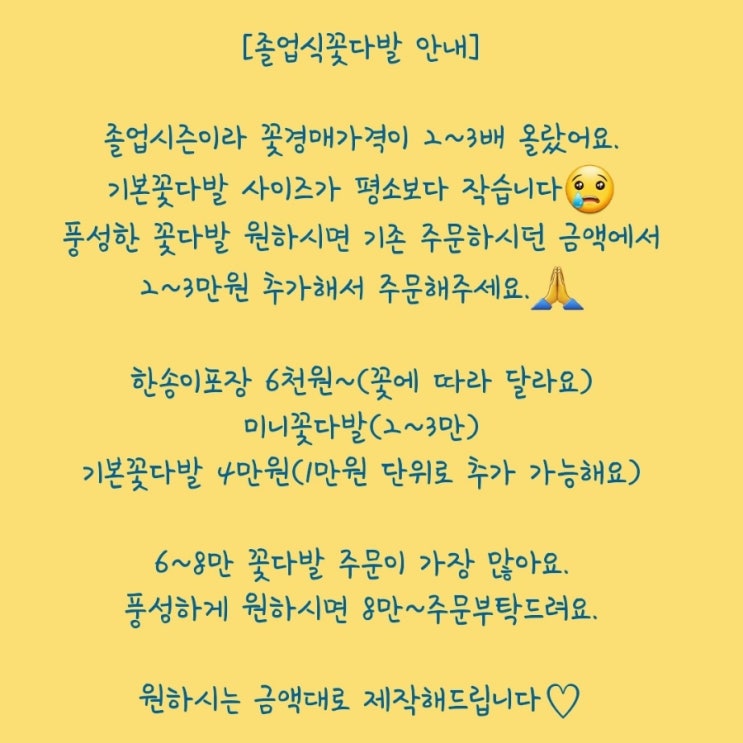 [졸업식꽃다발 안내]
졸업시즌이라 꽃경매가격이 2~3배 올랐어요.
기본꽃다발 사이즈가 평소보다 작습니다😢
풍성한 꽃다발 원하시면 기존 주문하시던 금액에서
2~3만원 추가해서 주문해주세요.🙏
한송이포장 6천원~(꽃에 따라 달라요)
미니꽃다발(2~3만)
기본꽃다발 4만원(1만원 단위로 추가 가능해요)
6~8만 꽃다발 주문이 가장 많아요.
풍성하게 원하시면 8만~주문부탁드려요.
원하시는 금액대로 제작해드립니다♡